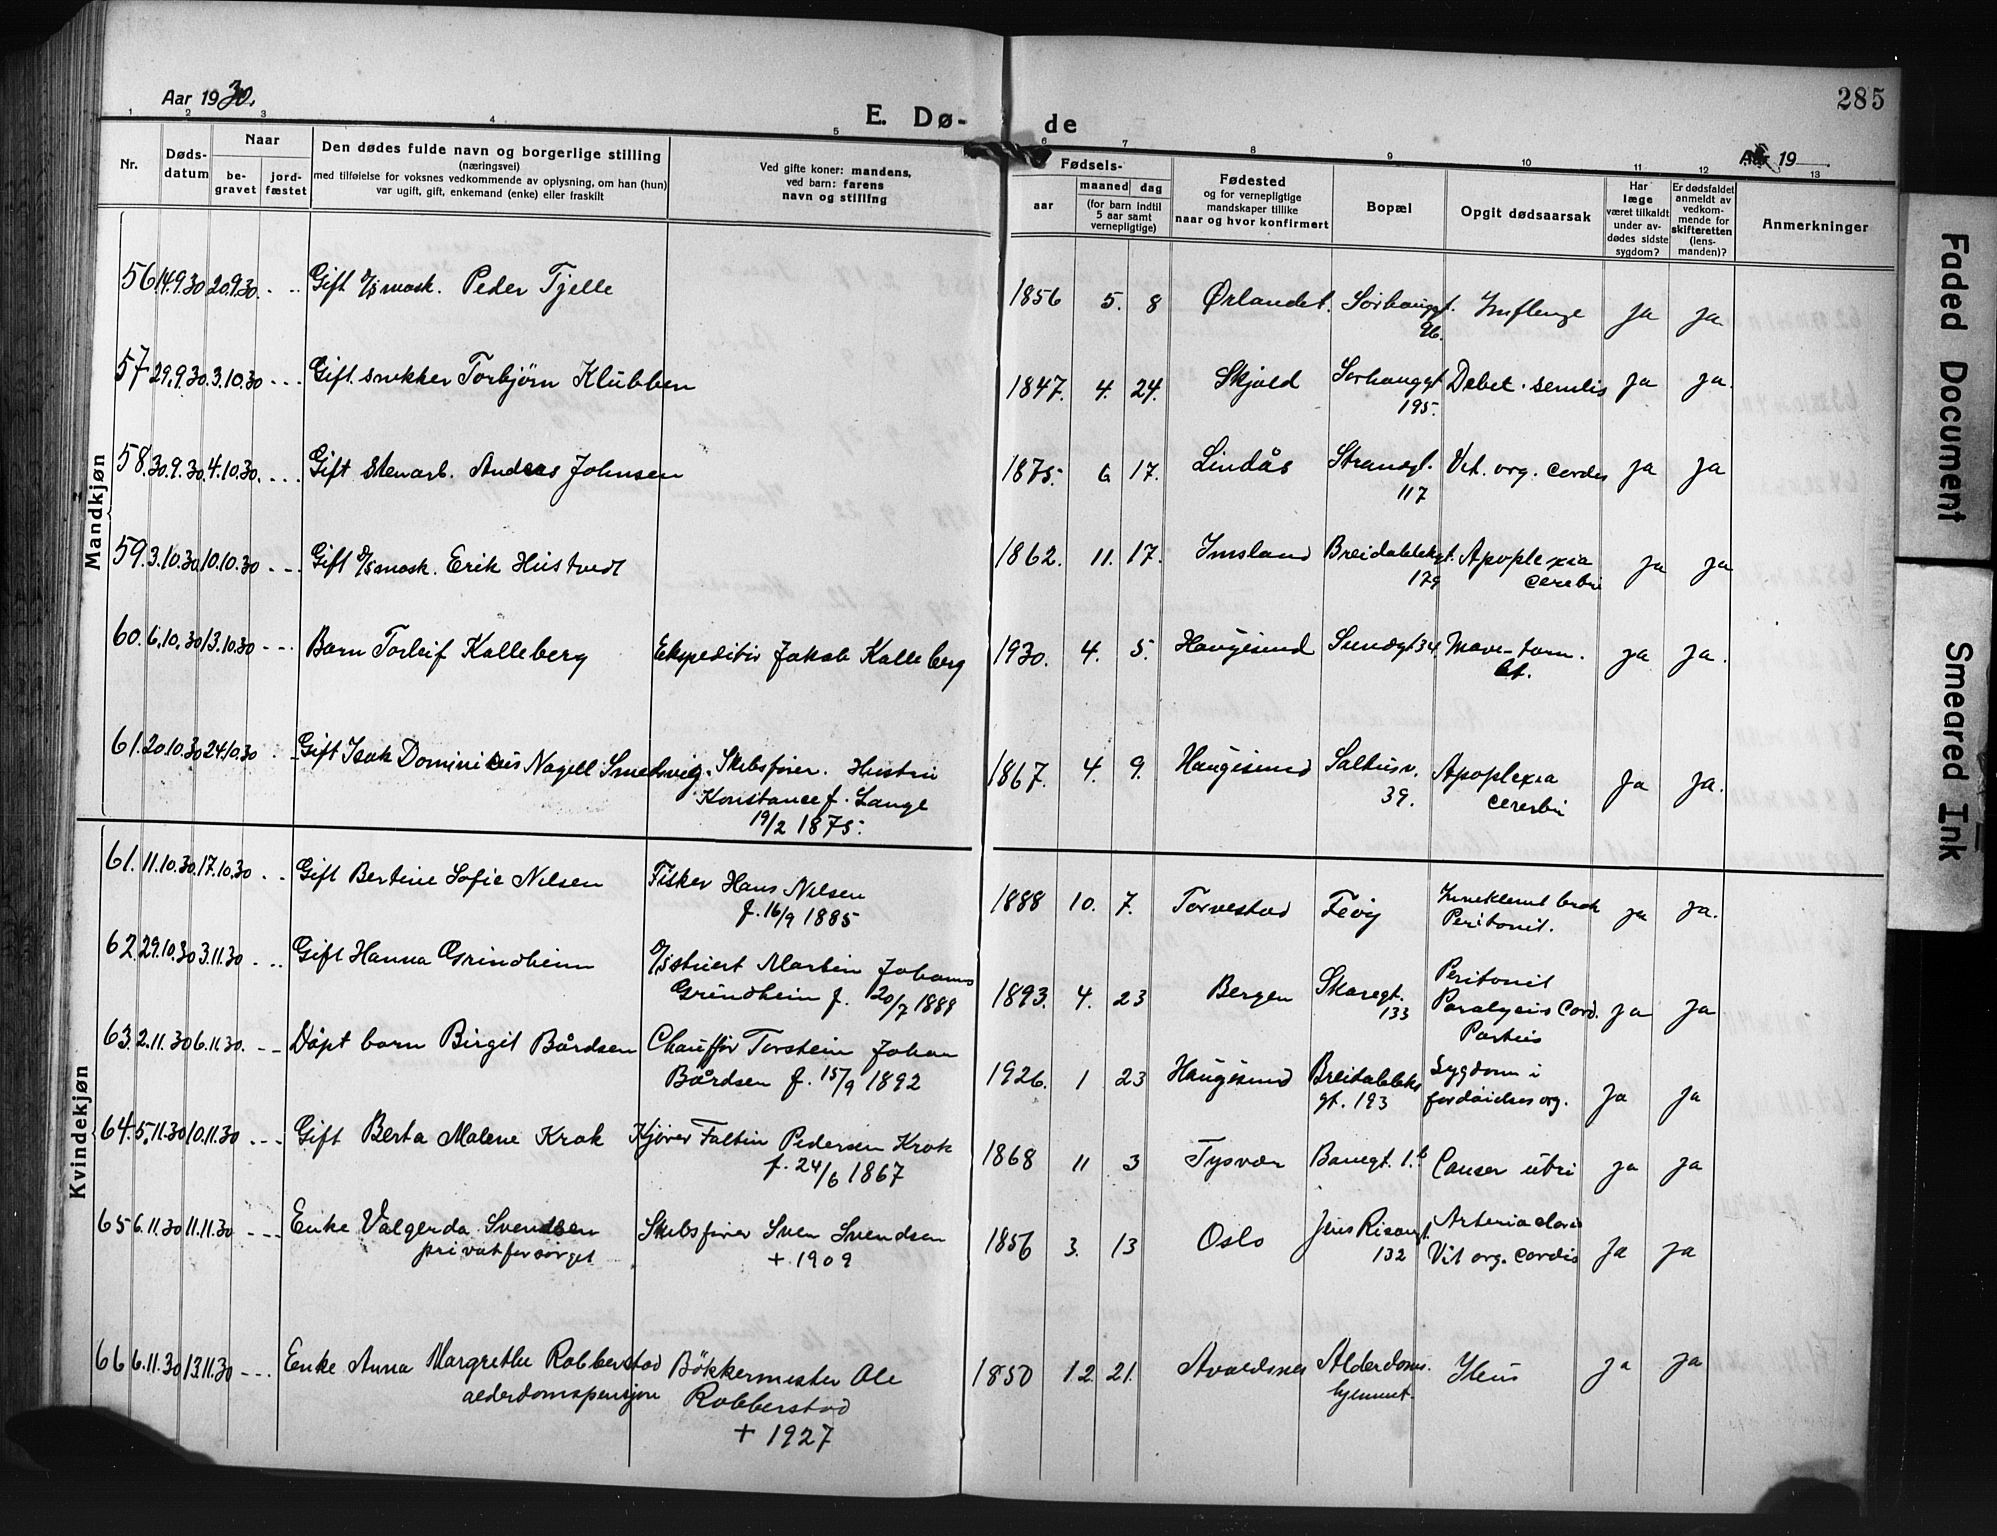 Aar 1930.
E. Dø-
de
Aar 19
285
1 2 3 4 5 6 7 8 9 10 11 12 13
Nr.
Døds-
datum
Naar
be-
gravet
jord-
fæstet
Den dødes fulde navn og borgerlige stilling
(næringsvei)
med tilføielse for voksnes vedkommende av oplysning, om han (hun)
var ugift, gift, enkemand (enke) eller fraskilt
Ved gifte koner: mandens,
ved barn: farens
navn og stilling
Fødsels-
aar
maaned
dag
(for barn indtil
5 aar samt
vernepligtige)
Fødested
og for vernepligtige
mandskaper tillike
naar og hvor konfirmert
Bopæl
Opgit dødsaarsak
Har
læge
været tilkaldt
under av-
dødes sidste
sygdom?
Er dødsfaldet
anmeldt av
vedkom-
mende for
skifteretten
(lens-
manden)?
Anmerkninger
Mandkjøn
56. 14.9.30 20.9.30. - - Gift m/s mask. Peder Tjelle 1856 5. 8 Ørlandet. Sørhauggt. Ja Ja
57 29.9.30. 3.10.30 - - - Gift snekker Torbjørn Klubben 1847. 4. 24. Skjold Sørhauggt Debet. senilis Ja Ja.
195.
58. 30.9.30 4.10.30. - - - Gift Stenarb. Andreas Johnsen 1875. 6 17. Lindås Strandgt. Vit. org. cordis Ja Ja
117
59. 3.10.30 10.10.30 - - - Gift mask. Erik Hustvedt 1862. 11. 17. Imsland Breidablikgt. Apoplexia Ja Ja
179 cerebri
60. 6.10.30 13.10.30 - - - Barn Torleif Kalleberg Ekspeditør Jakob Kalleberg 1930. 4. 5. Haugesund Sundgt 34. Mave-tarm. Ja Ja.
61. 20.10.30 24.10.30 - - Gift Isak Dominicus Nagell Smedsvig. Skibsfører. Hustru 1867. 4. 9. Haugesund Saltusv. Apoplexia Ja Ja.
Konstance f. Lange 39. cerebri
19/2 1875.
Kvindekjøn
61. 11.10.30 17.10.30 - - Gift Bertine Sofie Nilsen Fisker Hans Nilsen 1888 10. 7. Torvestad Feøy Inneklemt brok Ja Ja.
f. 16/9 1885 Peritonit.
62. 29.10.30 3.11.30 - - - Gift Hanna Grindheim stuert Martin Johannes 1893. 4. 23 Bergen Skaregt. Peritonit Ja Ja
Grindheim f. 20/7 1888 133 Paralysis Cord.
Partus
63. 2.11.30 6.11.30. - - Døpt barn Birgit Bårdsen Chauffør Torstein Johan 1926. 1 23 Haugesund Breidabliks Sygdom i Ja Ja
Bårdsen f. 15/9 1892 gt. 193 fordøielses org.
64. 5.11.30 10.11.30 - - - Gift Berta Malene Krok Kjører Faltin Pedersen Krok 1868 11 3 Tysvær Banegt. 1.b Canser utri Ja Ja
f. 24/6 1867
65 6.11.30 11.11.30 - - - Enke Valgerda Svendsen Skibsfører Sven Svendsen 1856 3. 13 Oslo Jens Risøengt. Ja Ja
privatforsørget + 1909 132 Vit org. cordis
66 6.11.30 13.11.30 - - - Enke Anna Margrethe Robberstad Bøkkermester Ole 1850 12. 21. Avaldsnes Alderdoms. Ileus Ja Ja
alderdomspensjon Robberstad hjemmet.
+ 1927
Faded Document
Smeared Ink